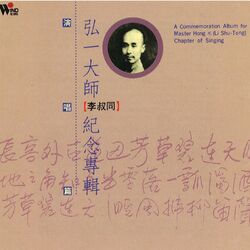 WIND
A Commemoration Album for
Master Hong Yi (Li Shu-Tong)
Chapter of Singing
弘一大師
[李叔同]
紀念專輯
演唱篇
長亭外古道边芳草碧連天
地之角知交半零落一瓢濁酒
芳草碧連天 晚風拂柳笛